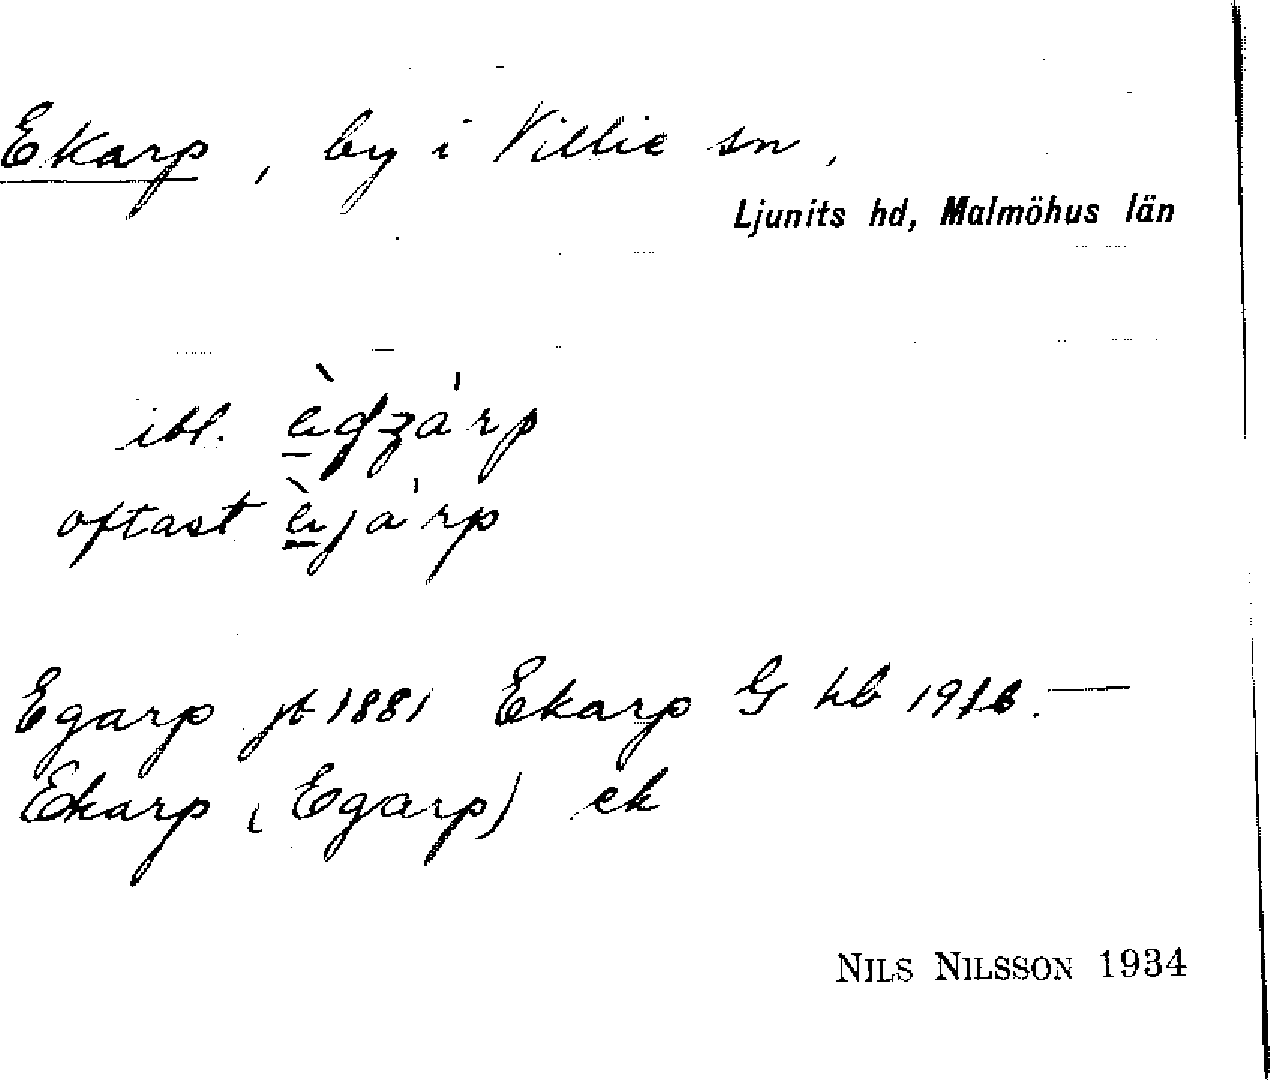 Ekarp, by i Villie sn,
Ljunits hd, Malmöhus län
ibl. èdzárp
oftast èjárp
Egarp jb 1881 Ekarp G kb 1916. —
Ekarp (Egarp) ek
NILS NILSSON 1934